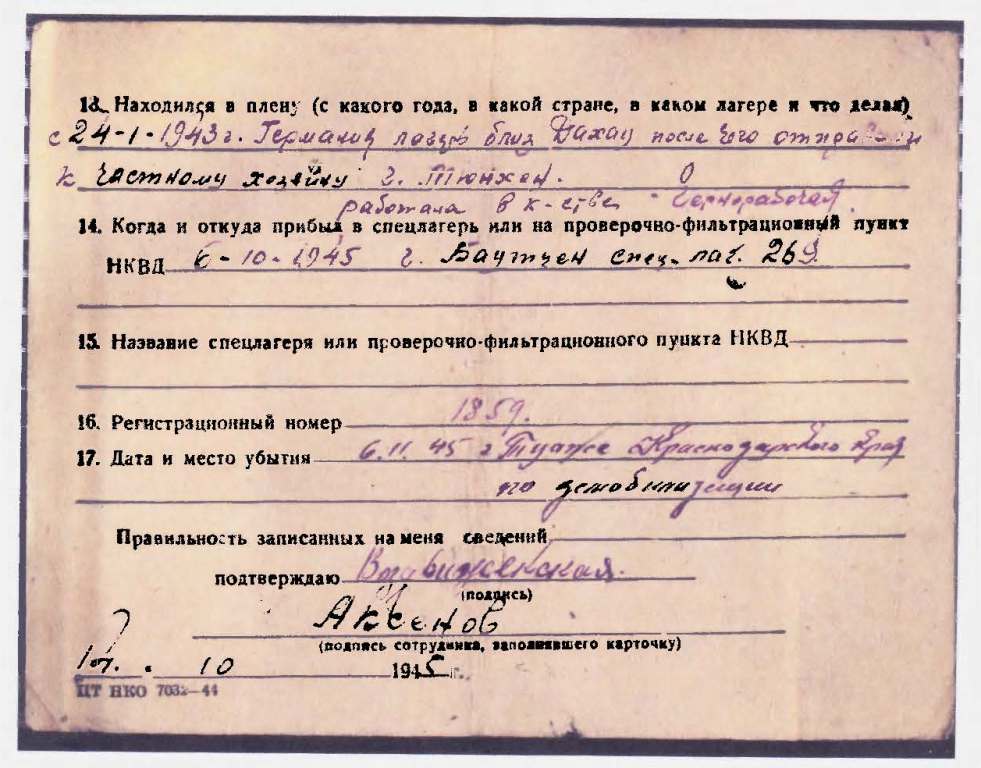 13. Находился в плену (с какого года, в какой стране, в каком лагере и что делал)
с 24-1-1943 г. Германия лагерь близ Дахау после чего отправлен
к частному хозяину г. Тюнхен.
работала в к-стве чернорабочая.
14. Когда и откуда прибыл в спецлагерь или на проверочно-фильтрационный пункт
НКВД 6-10-1945 г. Баутцен спец. лаг. 269.
15. Название спецлагеря или проверочно-фильтрационного пункта НКВД
16. Регистрационный номер 1859.
17. Дата и место убытия 6.11.45 г Туапсе Краснодарского края
по демобилизации
Правильность записанных на меня сведений
подтверждаю
(подпись)
Аксенов
(подпись сотрудника, заполнявшего карточку)
10 1945 г.
ЦТ НКО 7032—44